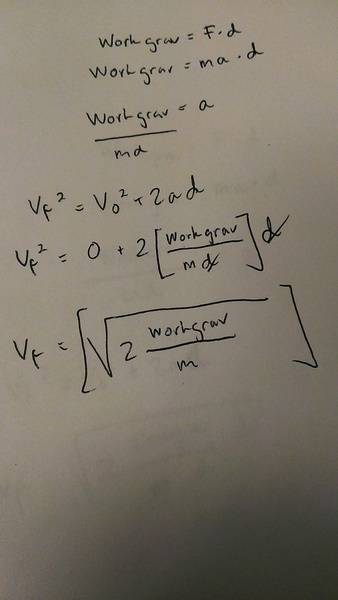 Workgrav = F · d
Workgrav = ma · d
Workgrav / md = a
Vf² = V0² + 2ad
Vf² = 0 + 2 [Workgrav / md] d
Vf = [√(2 Workgrav / m)]